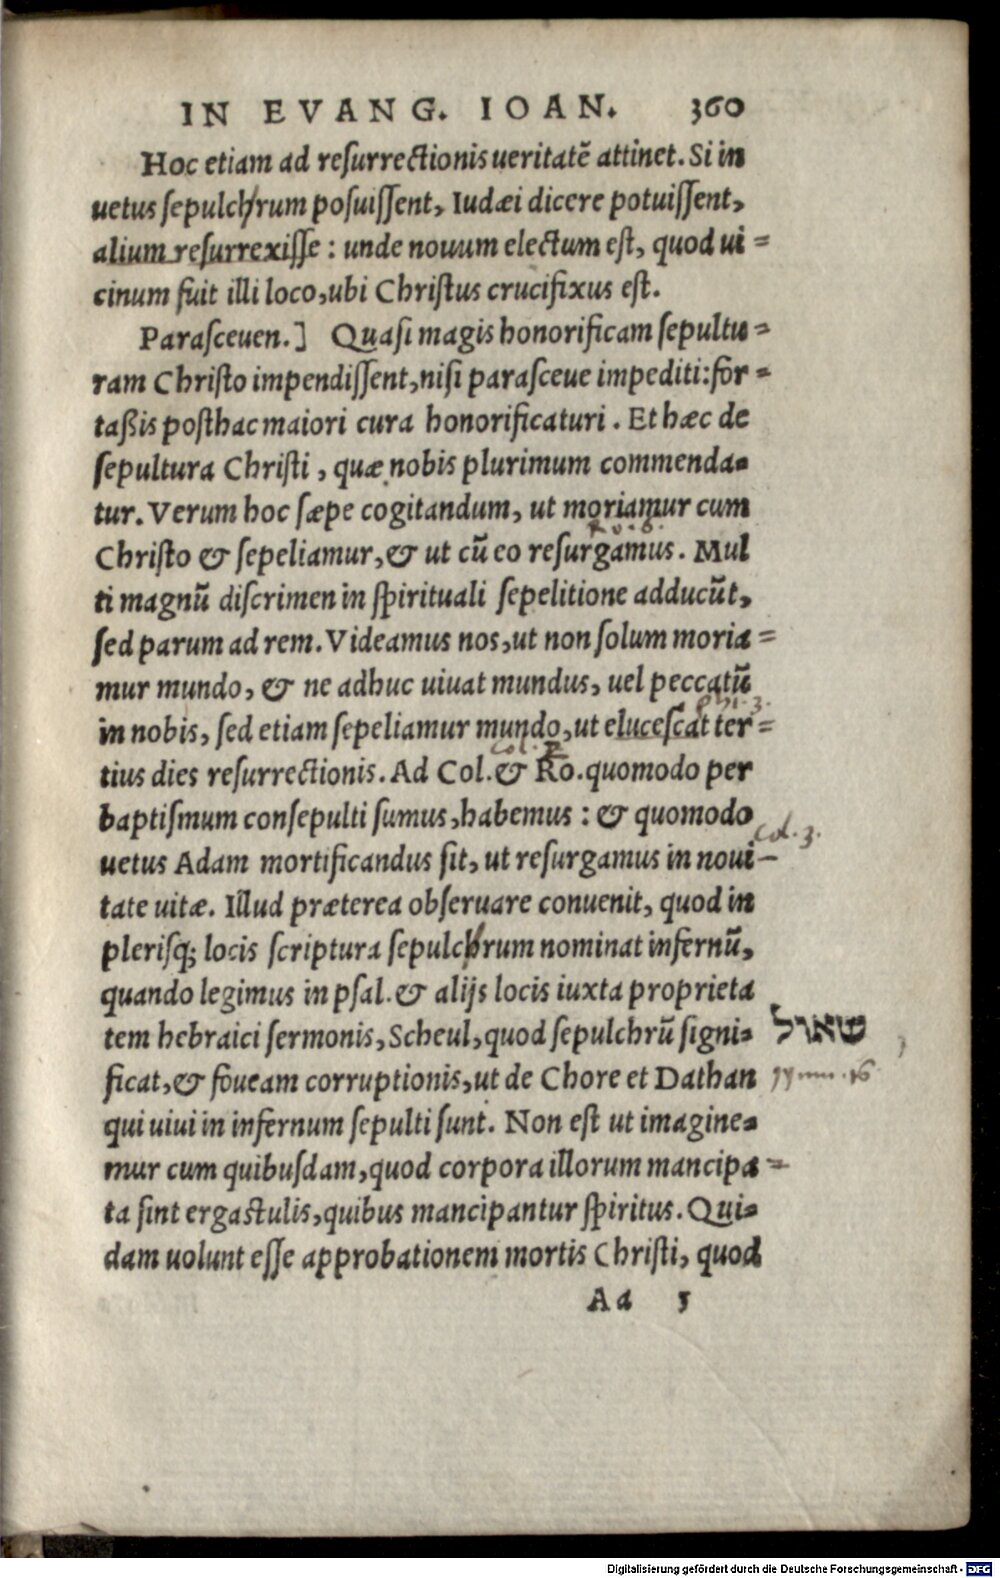 IN EVANG. IOAN. 360
Hoc etiam ad resurrectionis ueritatẽ attinet. Si in
uetus sepulchrum posuissent, Iudæi dicere potuissent,
alium resurrexisse: unde nouum electum est, quod ui=
cinum fuit illi loco, ubi Christus crucifixus est.
Parasceuen.] Quasi magis honorificam sepultu=
ram Christo impendissent, nisi parasceue impediti: for=
taßis posthac maiori cura honorificaturi. Et hæc de
sepultura Christi, quæ nobis plurimum commenda=
tur. Verum hoc sæpe cogitandum, ut moriamur cum
Ro. 6.
Christo & sepeliamur, & ut cũ eo resurgamus. Mul
ti magnũ discrimen in spirituali sepelitione adducũt,
sed parum ad rem. Videamus nos, ut non solum moria=
mur mundo, & ne adhuc uiuat mundus, uel peccatũ
Phi. 3.
in nobis, sed etiam sepeliamur mundo, ut elucescat ter=
Col. 2
tius dies resurrectionis. Ad Col. & Ro. quomodo per
baptismum consepulti sumus, habemus: & quomodo
Col. 3.
uetus Adam mortificandus sit, ut resurgamus in noui–
tate uitæ. Illud præterea obseruare conuenit, quod in
plerisq; locis scriptura sepulchrum nominat infernũ,
quando legimus in psal. & alijs locis iuxta proprieta
tem hebraici sermonis, Scheul, quod sepulchrũ signi= שאול
ficat, & foueam corruptionis, ut de Chore et Dathan 16
qui uiui in infernum sepulti sunt. Non est ut imagine=
mur cum quibusdam, quod corpora illorum mancipa=
ta sint ergastulis, quibus mancipantur spiritus. Qui=
dam uolunt esse approbationem mortis Christi, quod
Aa 5
Digitalisierung gefördert durch die Deutsche Forschungsgemeinschaft - DFG